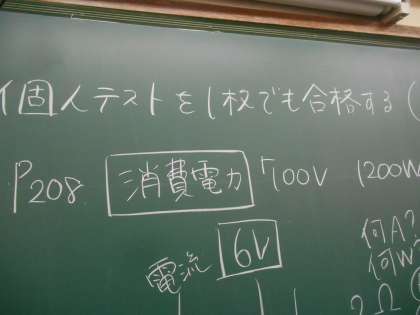 個人テストを1枚でも合格する(
P208 消費電力 100V 1200W
電流 6V 何A?
何W?
2Ω